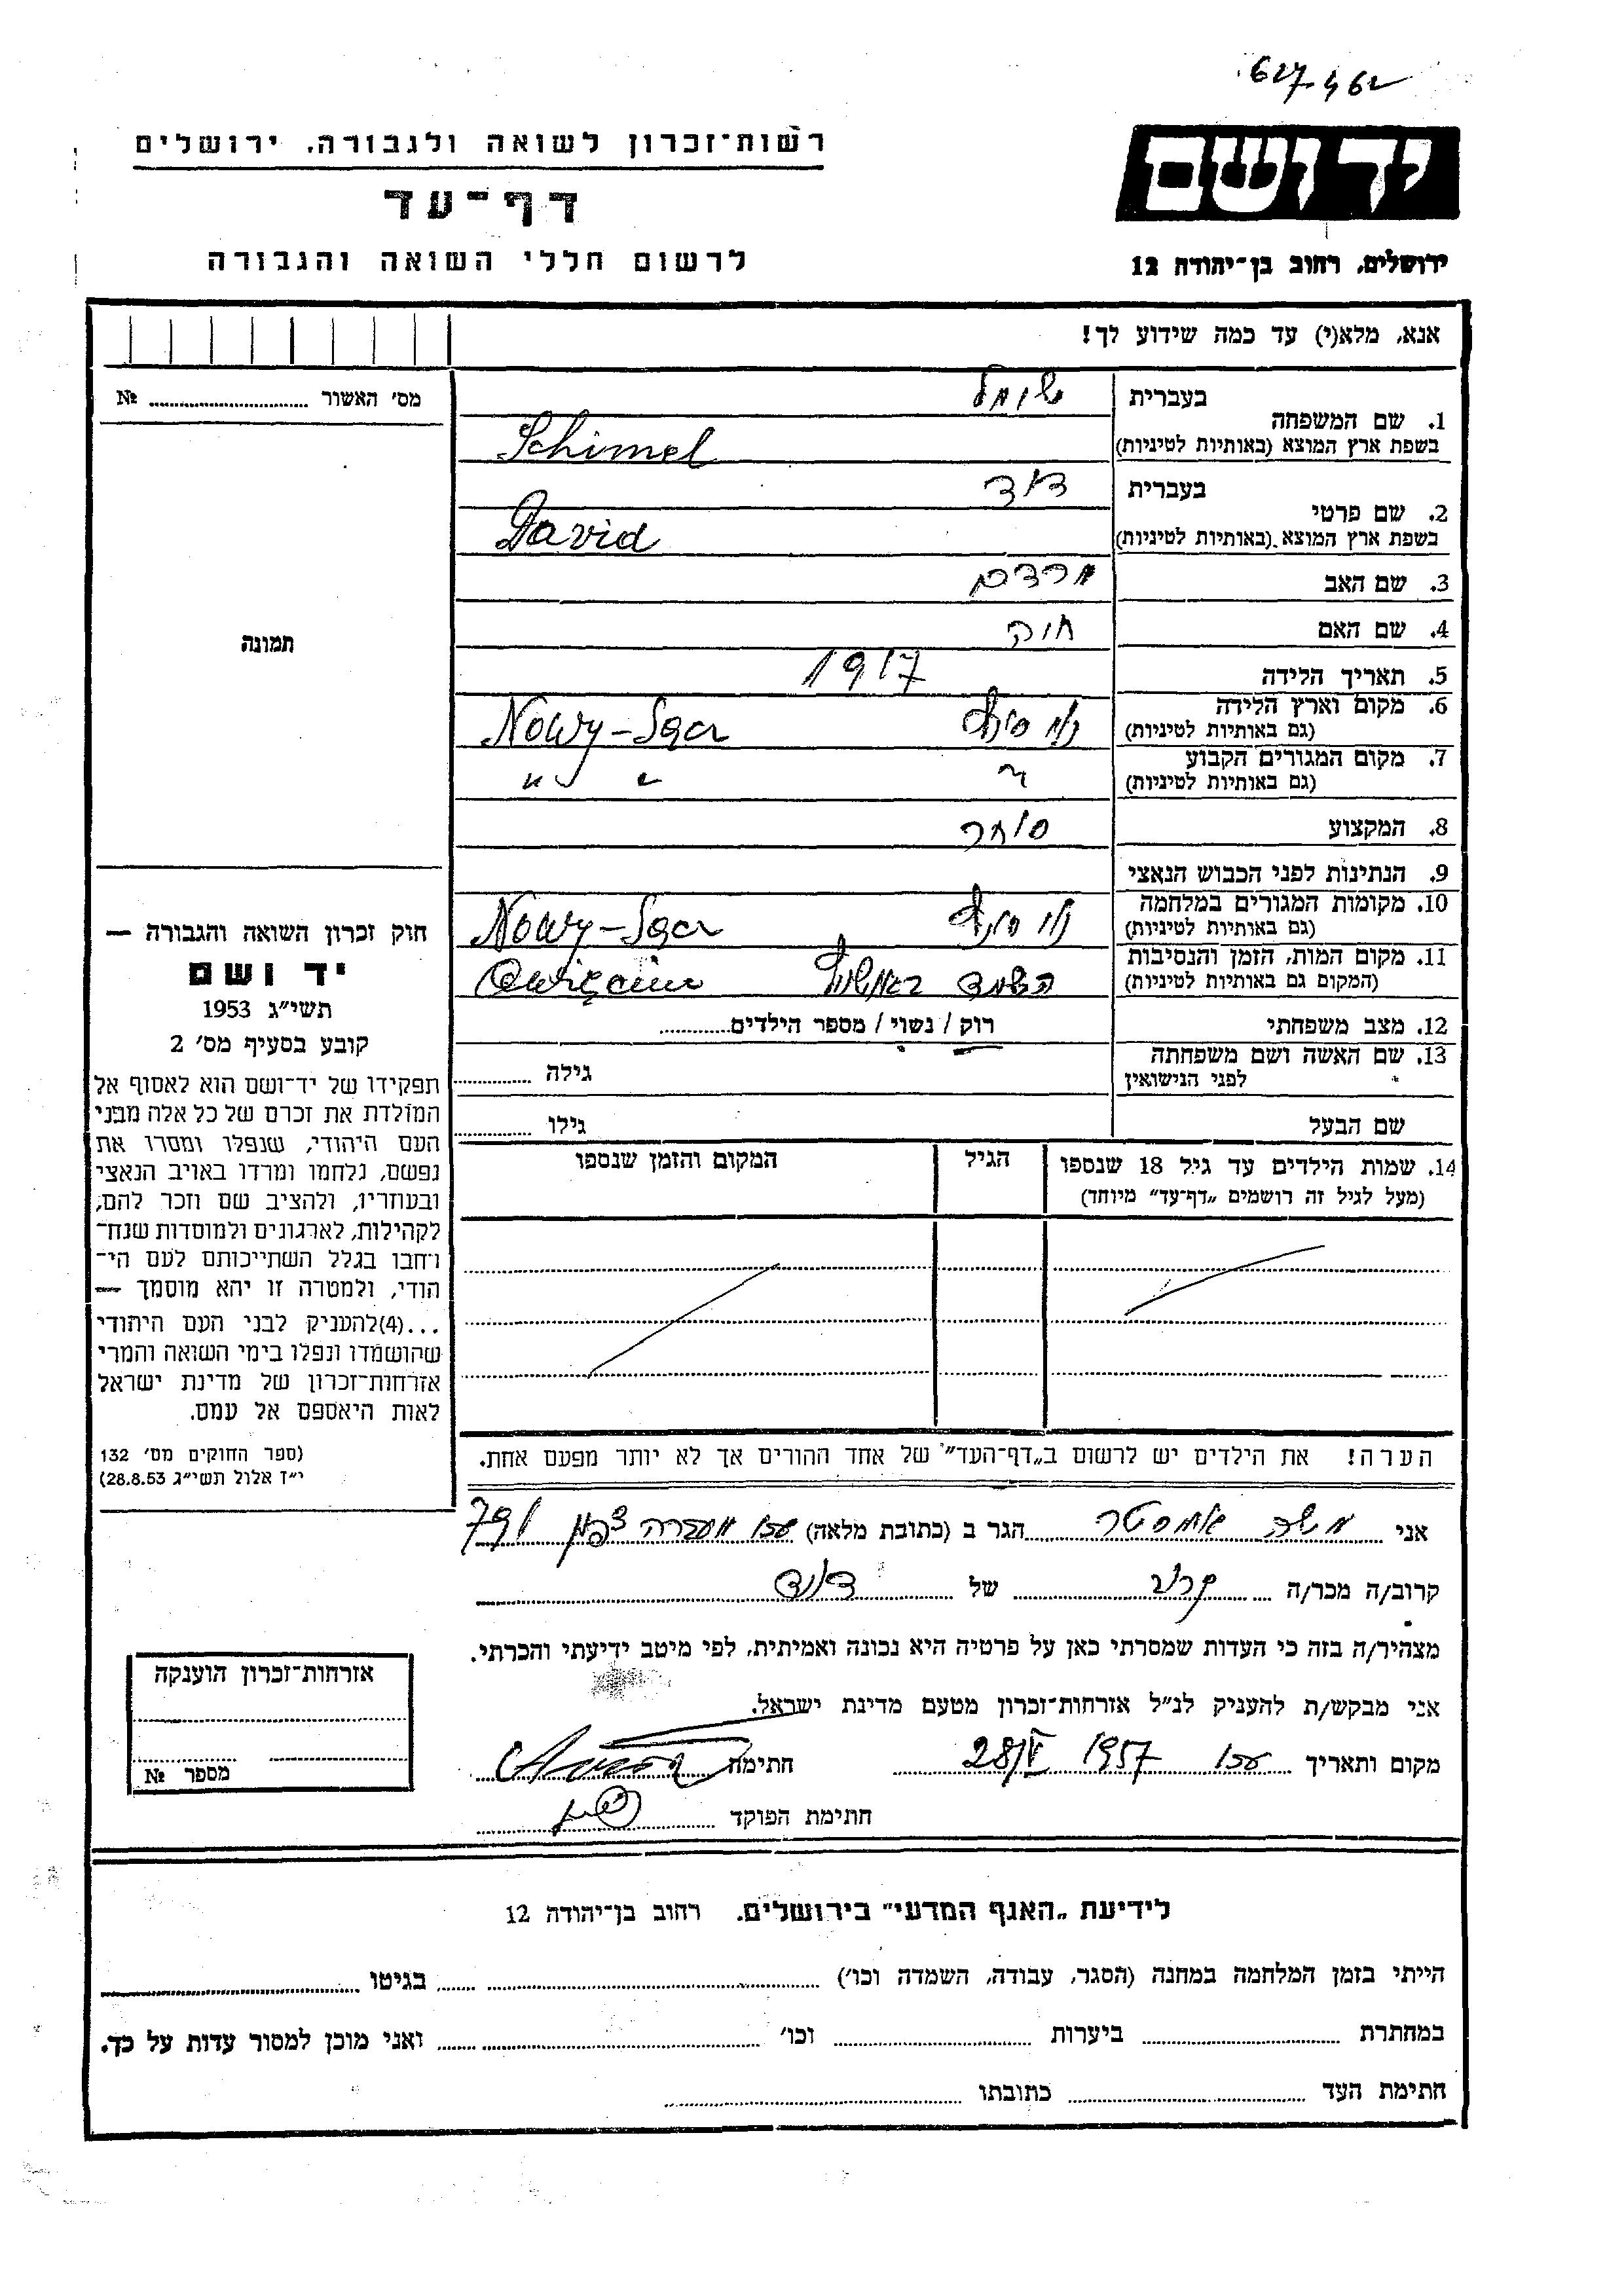 627462
רשות־זכרון לשואה ולגבורה, ירושלים
יד ושם
דף־עד
לרשום חללי השואה והגבורה
ירושלים, רחוב בן־יהודה 12
אנא, מלא(י) עד כמה שידוע לך!
מס' האשור № 
1. שם המשפחה
בעברית שימל
בשפת ארץ המוצא (באותיות לטיניות) Schimel
2. שם פרטי
בעברית דוד
בשפת ארץ המוצא (באותיות לטיניות) David
3. שם האב מרדכי
4. שם האם
תמונה
5. תאריך הלידה 1917
6. מקום וארץ הלידה
(גם באותיות לטיניות) Nowy-Sącz
7. מקום המגורים הקבוע
(גם באותיות לטיניות) " "
8. המקצוע סוחר
9. הנתינות לפני הכבוש הנאצי
10. מקומות המגורים במלחמה
(גם באותיות לטיניות) Nowy-Sącz
11. מקום המות, הזמן והנסיבות
(המקום גם באותיות לטיניות) הושמד
12. מצב משפחתי רווק / נשוי / מספר הילדים
13. שם האשה ושם משפחתה
לפני הנישואין גילה
שם הבעל גילו
14. שמות הילדים עד גיל 18 שנספו הגיל המקום והזמן שנספו
(מעל לגיל זה רושמים „דף־עד” מיוחד)
הערה! את הילדים יש לרשום ב„דף־העד” של אחד ההורים אך לא יותר מפעם אחת.
חוק זכרון השואה והגבורה —
יד ושם
תשי"ג 1953
קובע בסעיף מס' 2
תפקידו של יד־ושם הוא לאסוף אל
המולדת את זכרם של כל אלה מבני
העם היהודי, שנפלו ומסרו את
נפשם, נלחמו ומרדו באויב הנאצי
ובעוזריו, ולהציב שם וזכר להם,
לקהילות, לארגונים ולמוסדות שנח־
רבו בגלל השתייכותם לעם הי־
הודי, ולמטרה זו יהא מוסמך —
...(4)להעניק לבני העם היהודי
שהושמדו ונפלו בימי השואה והמרי
אזרחות־זכרון של מדינת ישראל
לאות היאספם אל עמם.
(ספר החוקים מס' 132
י"ז אלול תשי"ג 28.8.53)
אני משה אמסטר הגר ב (כתובת מלאה) עכו
קרוב/ה מכר/ה קרוב של דוד
מצהיר/ה בזה כי העדות שמסרתי כאן על פרטיה היא נכונה ואמיתית, לפי מיטב ידיעתי והכרתי.
אני מבקש/ת להעניק לנ"ל אזרחות־זכרון מטעם מדינת ישראל.
מקום ותאריך עכו 1957 חתימה
חתימת הפוקד
אזרחות־זכרון הוענקה
מספר №
לידיעת „האגף המדעי” בירושלים, רחוב בן־יהודה 12
הייתי בזמן המלחמה במחנה (הסגר, עבודה, השמדה וכו') בגיטו
במחתרת ביערות וכו' ואני מוכן למסור עדות על כך.
חתימת העד כתובתו